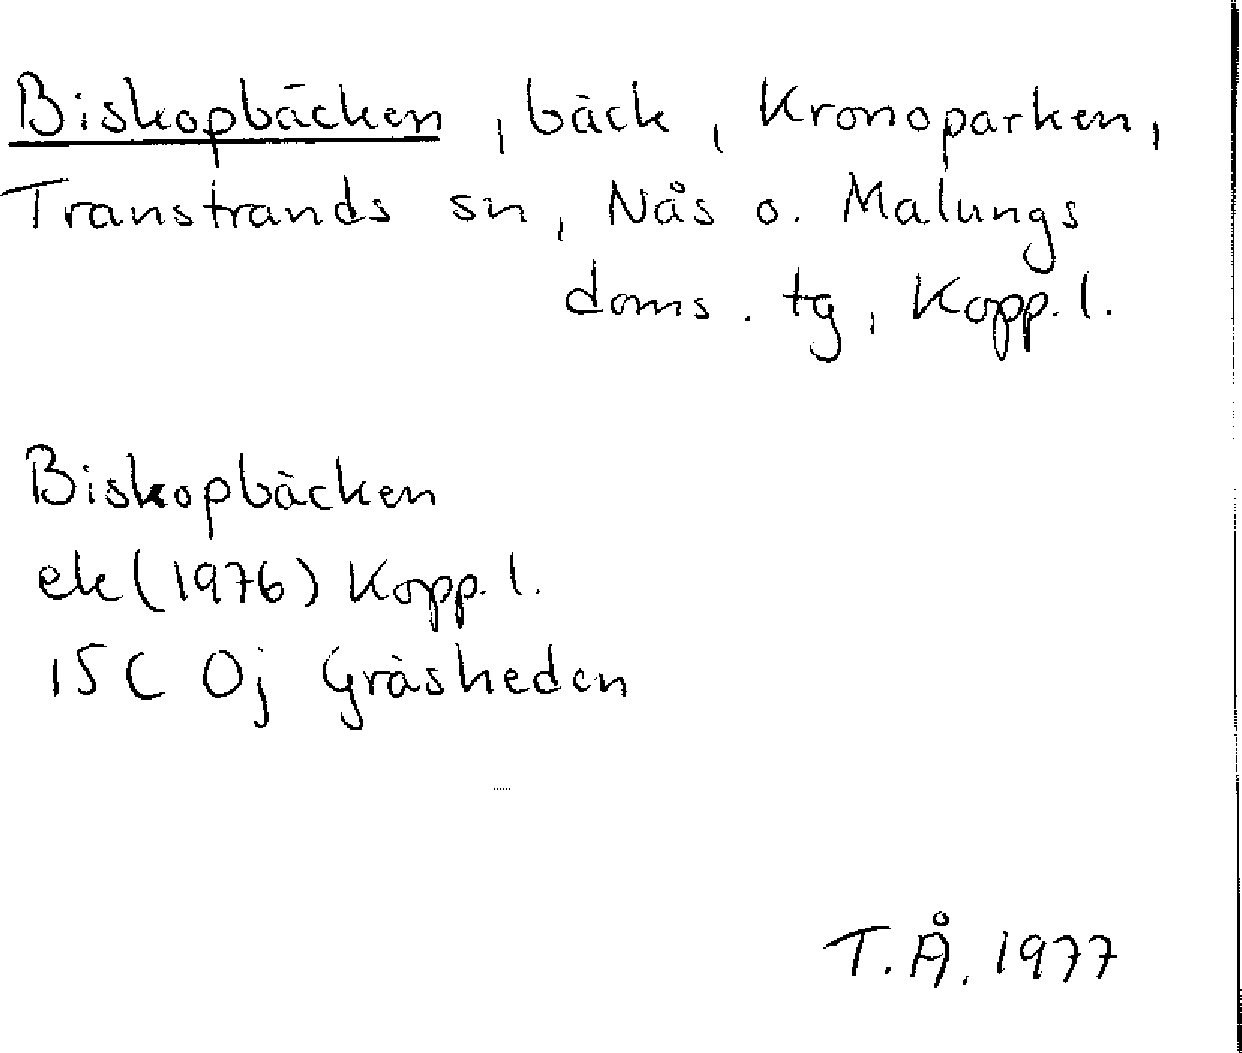 Biskopbäcken, bäck, Kronoparken,
Transtrands sn, Nås o. Malungs
doms. tg, Kopp. l.
Biskopbäcken
ek (1976) Kopp. l.
15C 0j Gräsheden
T.Å. 1977